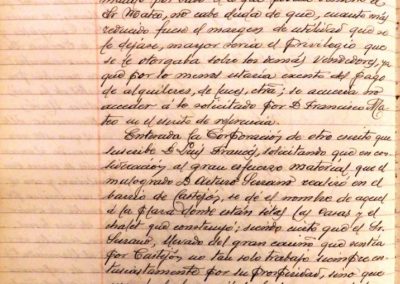 Sr Mateo, no cabe duda de que, cuanto más
reducido fuese el margen de utilidad que se
le dejare, mayor sería el privilegio que
se le otorgaba sobre los demás vendedores, ya
qué por lo menos estaria exento del pago
de alquileres, de luces, etra; se acuerda no
acceder á lo solicitado por D. Francisco Ma-
teo en el escrito de referencia.
Enterada la Corporación de otro escrito que
suscribe D. Luis Francés, solicitando que en con-
sideración al gran esfuerzo material, que el
malogrado D. Arturo Serrano realizó en el
barrio de Castejón, se dé el nombre de aquel
á la plaza donde están sitas las casas y el
chalet que construyó; siendo cierto que el Sr.
Serrano, llevado del gran cariño que sentía
por Castejón, no tan solo trabajó siempre en-
tusiastamente por su prosperidad, sino que